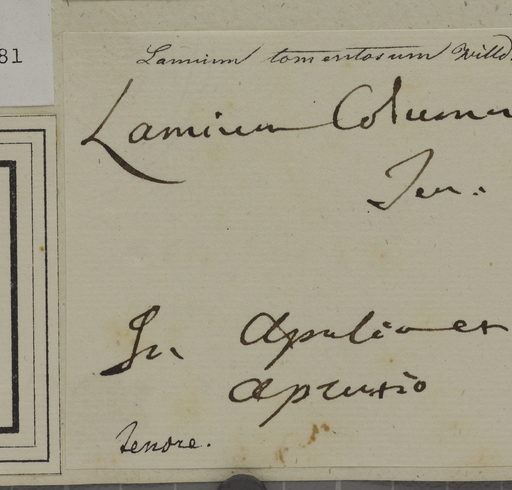 81
Lamium tomentosum Willd.
Lamium Columna
Ten.
In Apulia et
Aprutio
Tenore.